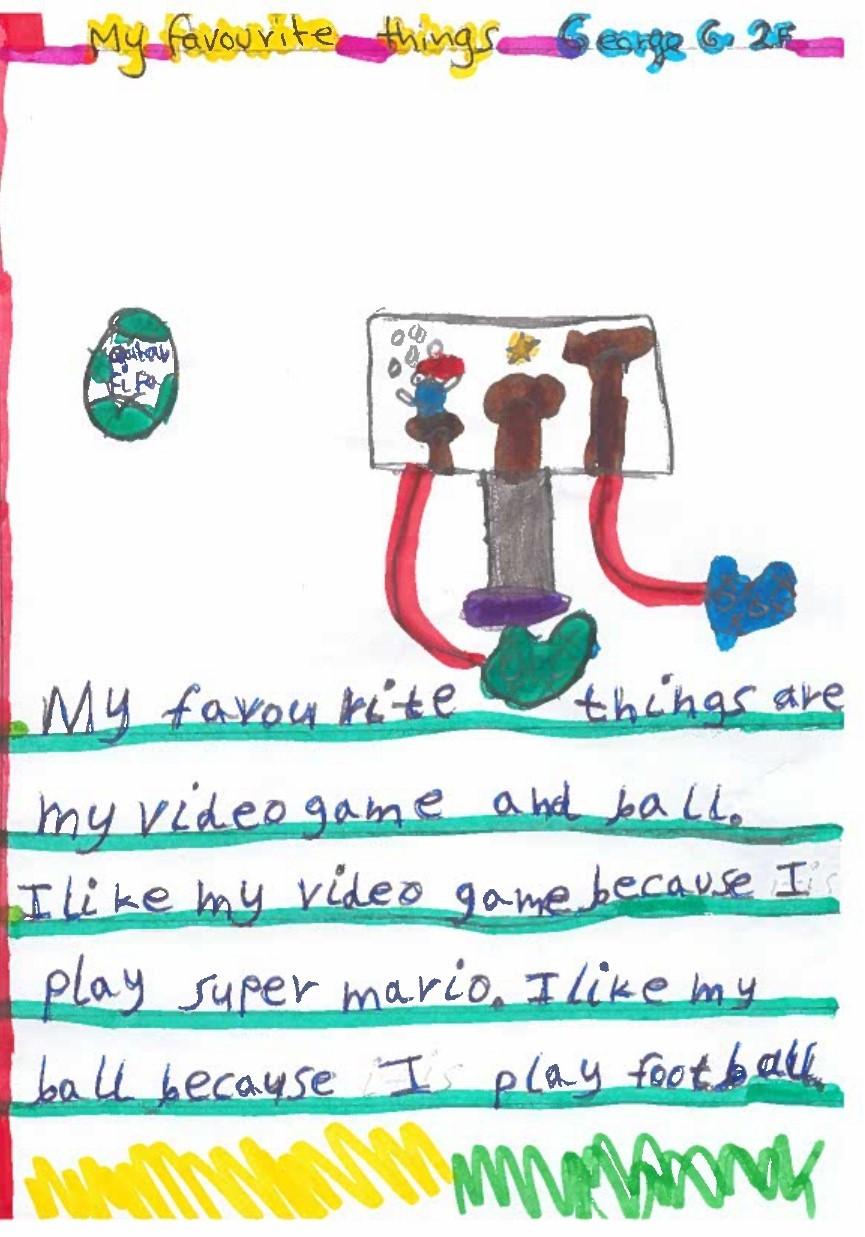 My favourite things George G. 2F
My favourite things are
my video game and ball.
I like my video game because I
play super mario. I like my
ball because I play football.